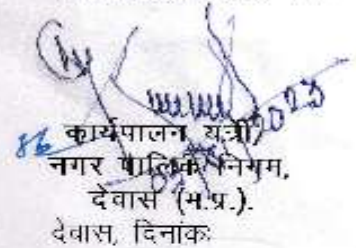 कार्यपालन यंत्री,
नगर पालिक निगम,
देवास (म.प्र.).
देवास, दिनांकः